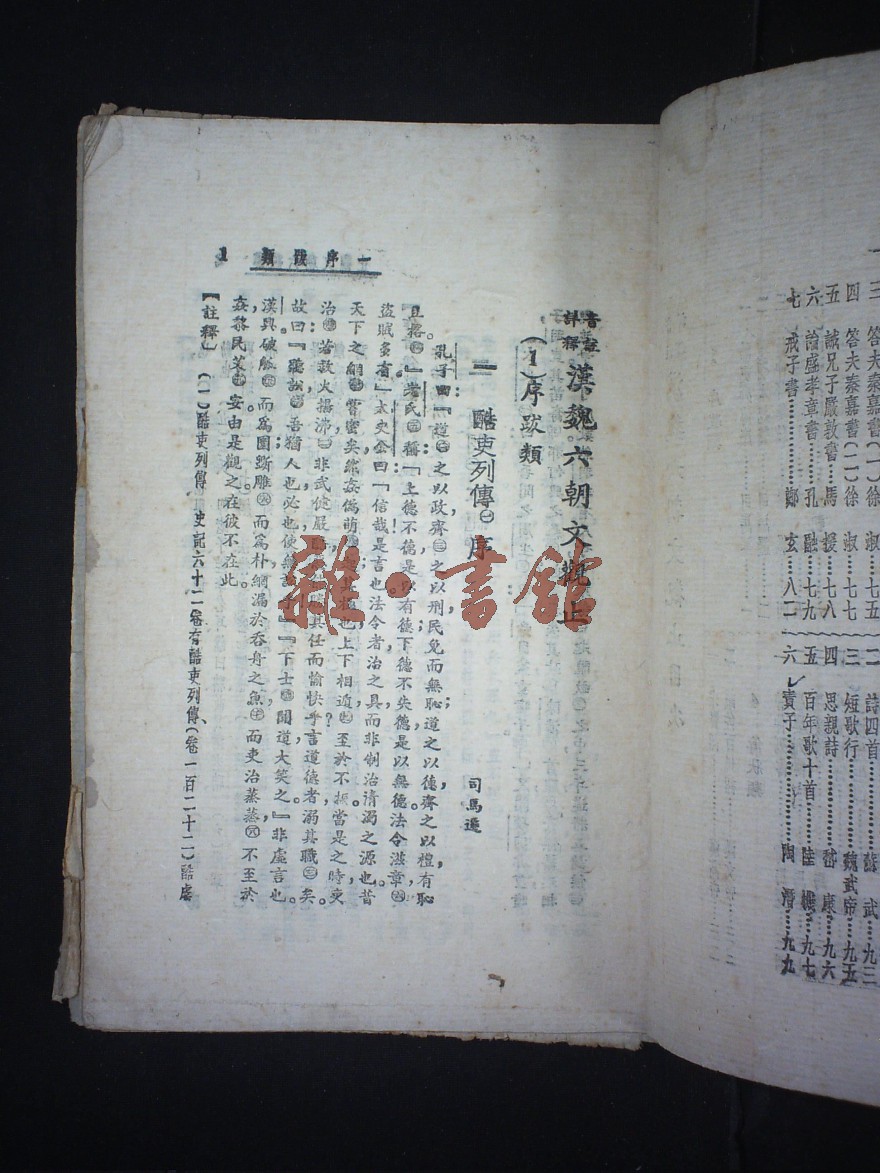 三 答夫秦嘉書(一)徐 淑 七五
四 答夫秦嘉書(二)徐 淑 七七
五 誡兄子嚴敦書……馬 援 七八
六 論盛孝章書……孔 融 七九
七 戒子書……鄭 玄 八二
二 詩四首……蘇 武 九三
三 短歌行……魏武帝 九五
四 思親詩……嵇 康 九六
五 百年歌十首……陸 機 九七
六 責子……陶 潛 九九
一序跋類 1
音註
詳釋 漢魏六朝文觀止
(1)序跋類
一 酷吏列傳㊀序
司馬遷
孔子曰『道㊁之以政齊㊂之以刑民免而無恥道之以德齊之以禮有恥
且格㊃。』老氏㊄稱『上德不德是以有德下德不失德是以無德法令滋章㊅
盜賊多有』太史公曰『信哉是言也法令者治之具而非制治清濁之源也。昔
天下之網嘗密矣然姦偽萌其極也上下相遁至於不振當是之時吏
治若救火揚沸非武健嚴勝其任而愉快乎?言道德者溺其職矣。
故曰『聽訟吾猶人也必也使無訟乎』『下士聞道大笑之。』非虛言也。
漢興破觚而為圜斲雕而為朴網漏於吞舟之魚而吏治蒸蒸不至於
姦黎民艾安由是觀之在彼不在此
【註釋】(一)酷吏列傳 史記六十二卷有酷吏列傳、(卷一百二十二)酷虐
雜·書館